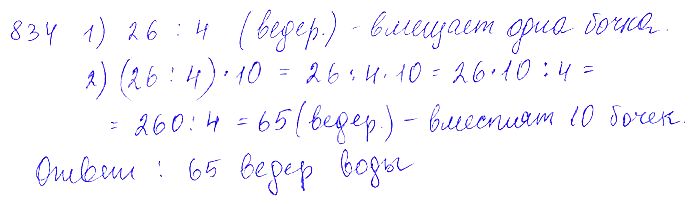 834 1) 26 : 4 (ведер.) - вмещает одна бочка.
2) (26 : 4) · 10 = 26 : 4 · 10 = 26 · 10 : 4 =
= 260 : 4 = 65 (ведер.) - вместят 10 бочек.
Ответ : 65 ведер воды